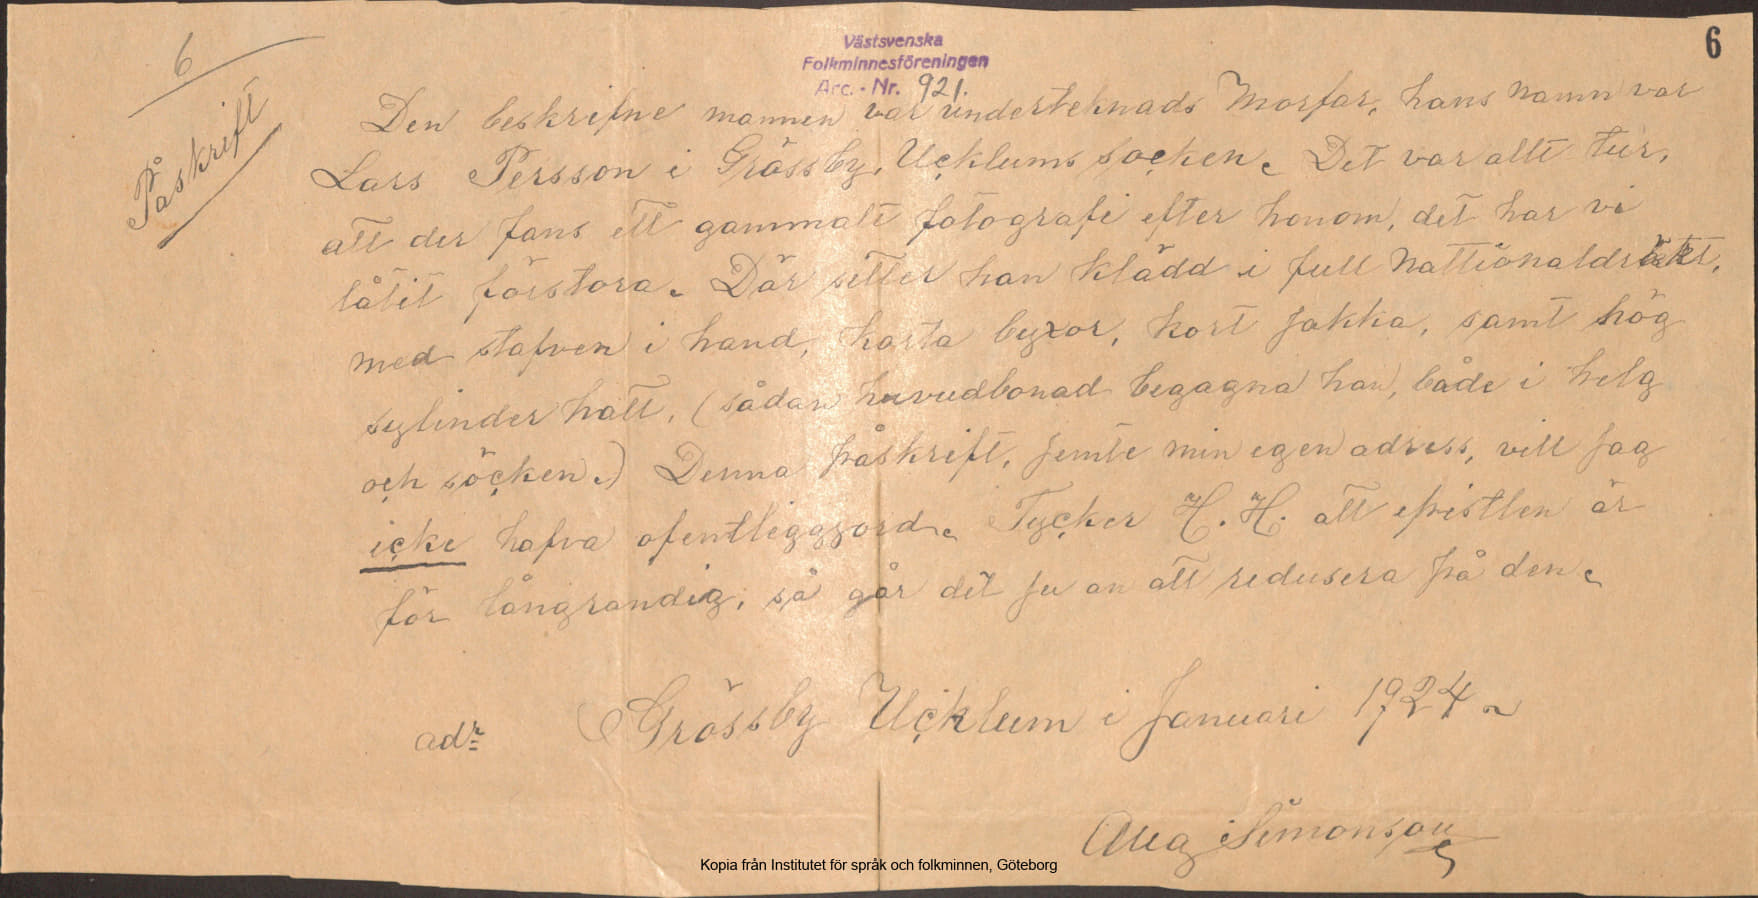 6
6
Påskrift
Västsvenska
Folkminnesföreningen
Acc. - Nr. 921.
Den beskrifne mannen var underteknads Morfar, hans namn var
Lars Persson i Grössby, Ucklums socken. Det var allt tur,
att der fans ett gammalt fotografi efter honom, det har vi
låtit förstora. Där sitter han klädd i full Nattionaldräkt,
med stafven i hand, korta byxor, kort jakka, samt hög
sylinder hatt, (sådan huvudbonad begagna han, både i helg
och söcken.) Denna påskrift, jemte min egen adress, vill jag
icke hafva ofentleggjord. Tycker H. H. att epistlen är
för långrandig, så går det ju an att redusera på den.
adr Grössby Ucklum i Januari 1924
Aug Simonson
Kopia från Institutet för språk och folkminnen, Göteborg